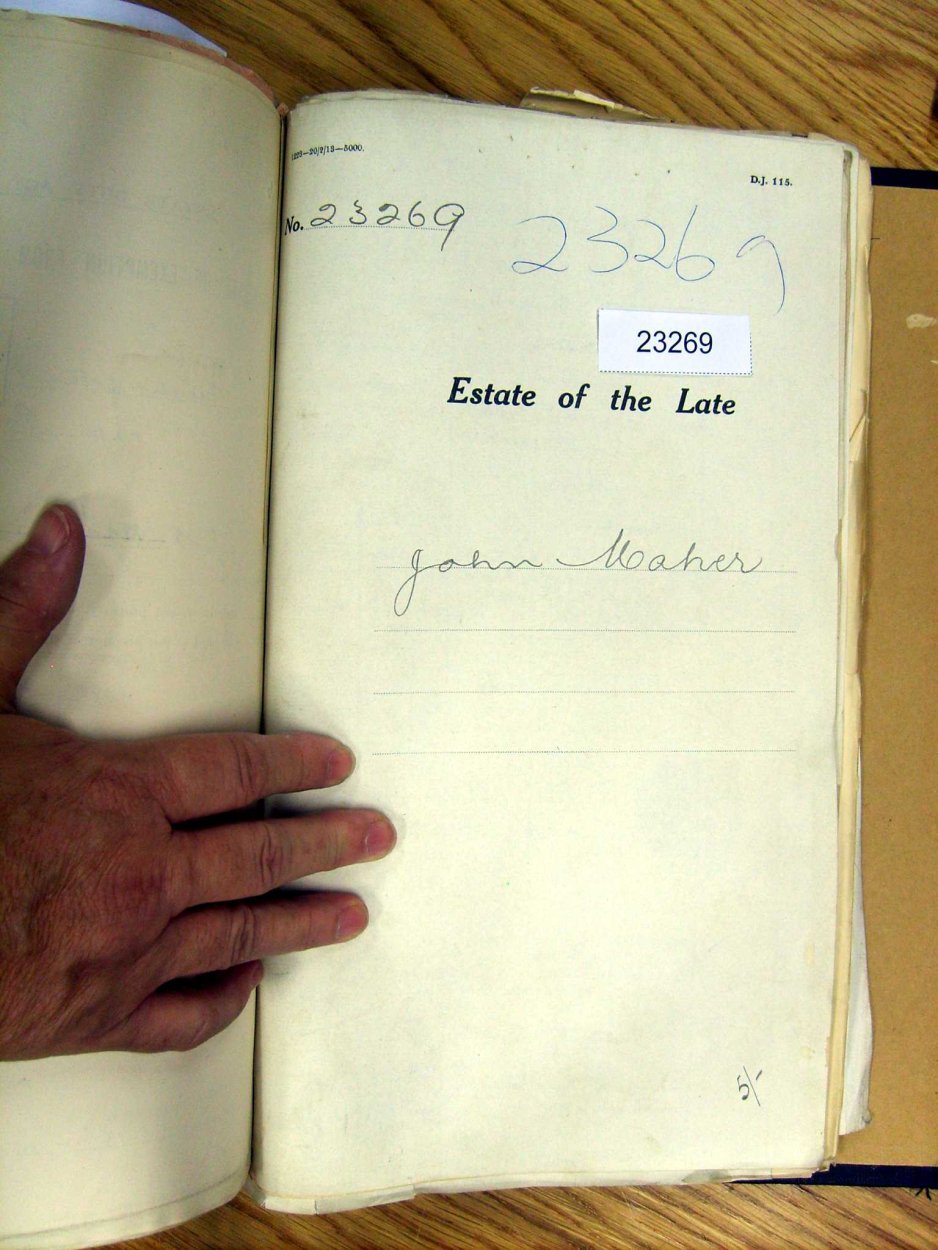 1223—20/2/13—5000.
D.J. 115.
No. 23269
23269
23269
Estate of the Late
John Maher
5/-